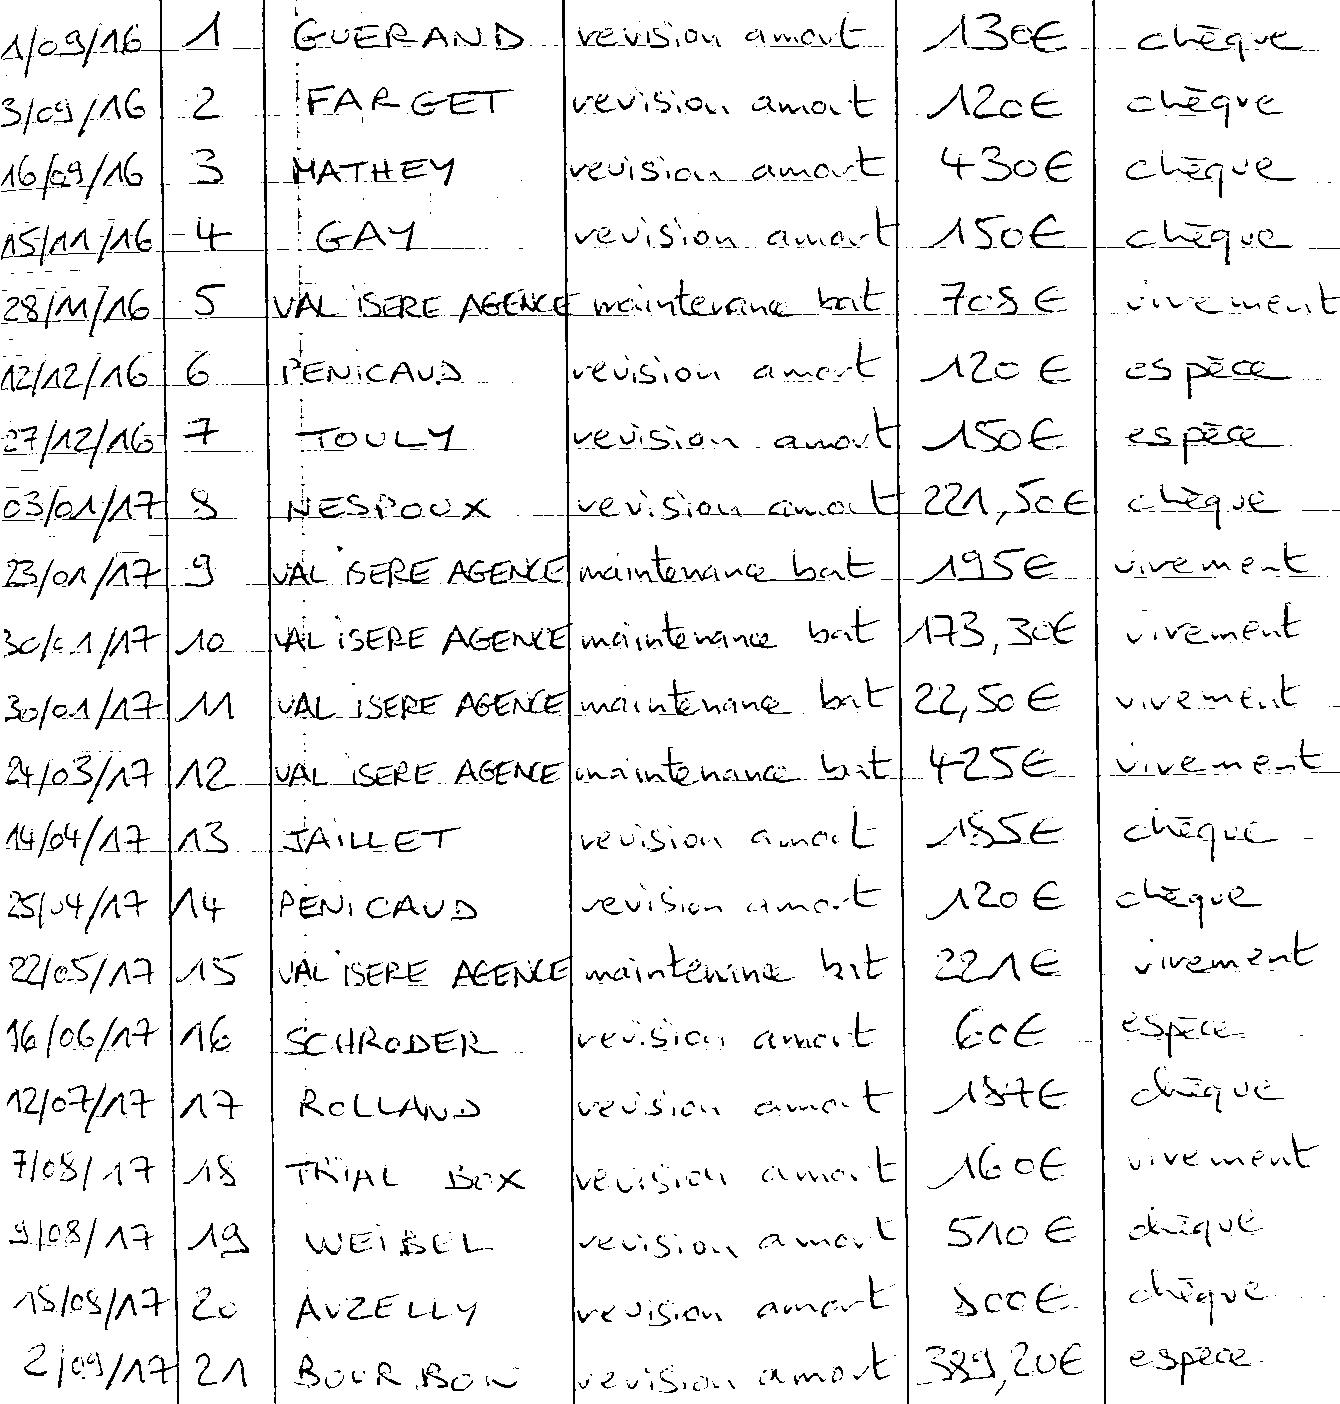 1/09/16 1 GUERAND revision amort 130€ chèque
3/09/16 2 FARGET revision amort 120€ chèque
16/09/16 3 MATHEY revision amort 430€ chèque
15/11/16 4 GAY revision amort 150€ chèque
28/11/16 5 VAL ISERE AGENCE maintenance bat 705€ virement
12/12/16 6 PENICAUD revision amort 120€ espèce
27/12/16 7 TOULY revision amort 150€ espèce
03/01/17 8 NESPOUX revision amort 221,50€ chèque
23/01/17 9 VAL ISERE AGENCE maintenance bat 195€ virement
30/01/17 10 VAL ISERE AGENCE maintenance bat 173,30€ virement
30/01/17 11 VAL ISERE AGENCE maintenance bat 22,50€ virement
24/03/17 12 VAL ISERE AGENCE maintenance bat 425€ virement
14/04/17 13 JAILLET revision amort chèque
25/04/17 14 PENICAUD revision amort 120€ chèque
22/05/17 15 VAL ISERE AGENCE maintenance bat 221€ virement
16/06/17 16 SCHRODER revision amort 60€ espèce
12/07/17 17 ROLLAND revision amort 187€ chèque
7/08/17 18 TRIAL BOX revision amort 160€ virement
9/08/17 19 WEIBEL revision amort 510€ chèque
18/08/17 20 AUZELLY revision amort 800€ chèque
2/09/17 21 BOURBON revision amort 389,20€ espèce